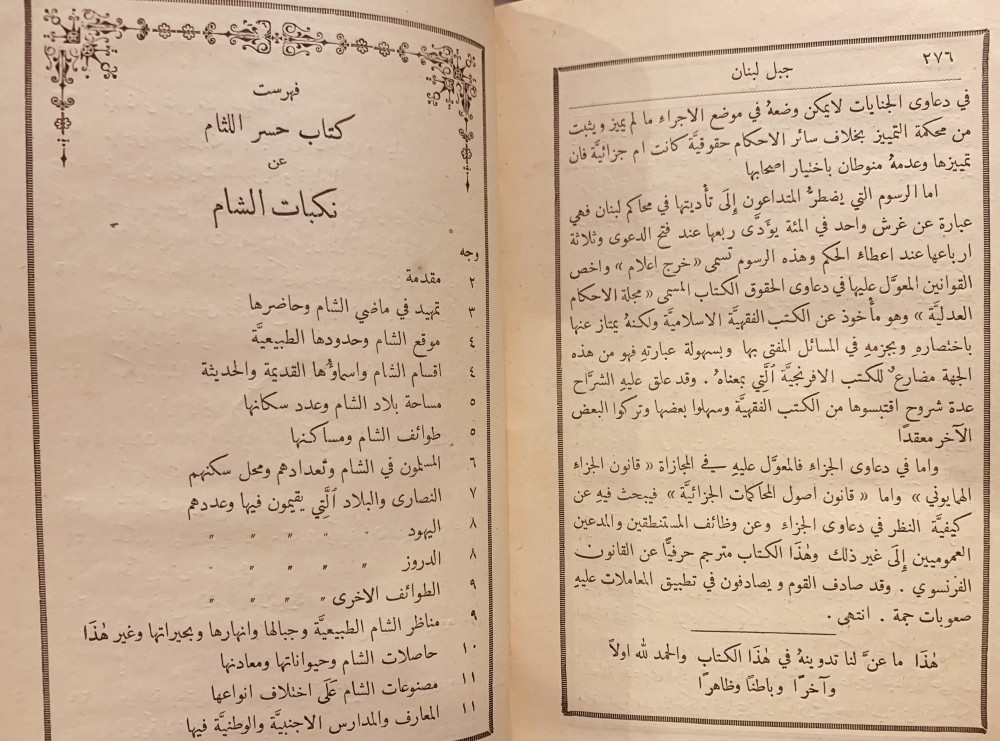 ٢٧٦
جبل لبنان
في دعاوى الجنايات لايمكن وضعهُ في موضع الاجراءِ ما لم يميز ويثبت
من محكمة التمييز بخلاف سائر الاحكام حقوقيَّة كانت ام جزائيَّة فان
تمييزها وعدمهُ منوطان باختيار اصحابها
اما الرسوم التي يضطرُّ المتداعون إِلَى تأديتها في محاكم لبنان فهي
عبارة عن غرش واحد في المئة يوَّدَّى ربعها عند فتح الدعوى وثلاثة
ارباعها عند اعطاءِ الحكم وهذه الرسوم تسمى « خرج اعلام » واخص
القوانين المعوَّل عليها في دعاوى الحقوق الكتاب المسمى « مجلة الاحكام
العدليَّة » وهو مأْخوذ عن الكتب الفقهيَّة الاسلاميَّة ولكنهُ يمتاز عنها
باختصارهِ وبجزمهِ في المسائل المفتى بها وبسهولة عبارتهِ فهو من هذه
الجهة مضارعٌ للكتب الافرنجيَّة ٱلَّتِي بمعناهُ . وقد علق عليهِ الشرَّاح
عدة شروح اقتبسوها من الكتب الفقهيَّة وسهلوا بعضها وتركوا البعض
الآخر معقدًا
واما في دعاوى الجزاءِ فالمعوَّل عليهِ في المجازاة « قانون الجزاءِ
الهمايوني » واما « قانون اصول المحاكمات الجزائيَّة » فيبحث فيهِ عن
كيفيَّة النظر في دعاوى الجزاءِ وعن وظائف المستنطقين والمدعين
العموميين إِلَى غير ذلك وهٰذَا الكتاب مترجم حرفيًّا عن القانون
الفرنسوي . وقد صادف القوم ويصادفون في تطبيق المعاملات عليهِ
صعوبات جمة . انتهى .
هٰذَا ما عنَّ لنا تدوينهُ في هٰذَا الكتاب والحمد لله اولاً
وآخرًا وباطنًا وظاهرًا
فهرست
كتاب حسر اللثام
عن
نكبات الشام
وجه
٢ مقدمة
٣ تمهيد في ماضي الشام وحاضرها
٤ موقع الشام وحدودها الطبيعيَّة
٤ اقسام الشام واسماوُّها القديمة والحديثة
٥ مساحة بلاد الشام وعدد سكانها
٥ طوائف الشام ومساكنها
٦ المسلمون في الشام وتعدادهم ومحل سكنهم
٧ النصارى والبلاد ٱلَّتِي يقيمون فيها وعددهم
٨ اليهود " " " " "
٨ الدروز " " " " "
٩ الطوائف الاخرى " " " "
٩ مناظر الشام الطبيعيَّة وجبالها وانهارها وبحيراتها وغير هٰذَا
١٠ حاصلات الشام وحيواناتها ومعادنها
١١ مصنوعات الشام عَلَى اختلاف انواعها
١١ المعارف والمدارس الاجنبيَّة والوطنيَّة فيها